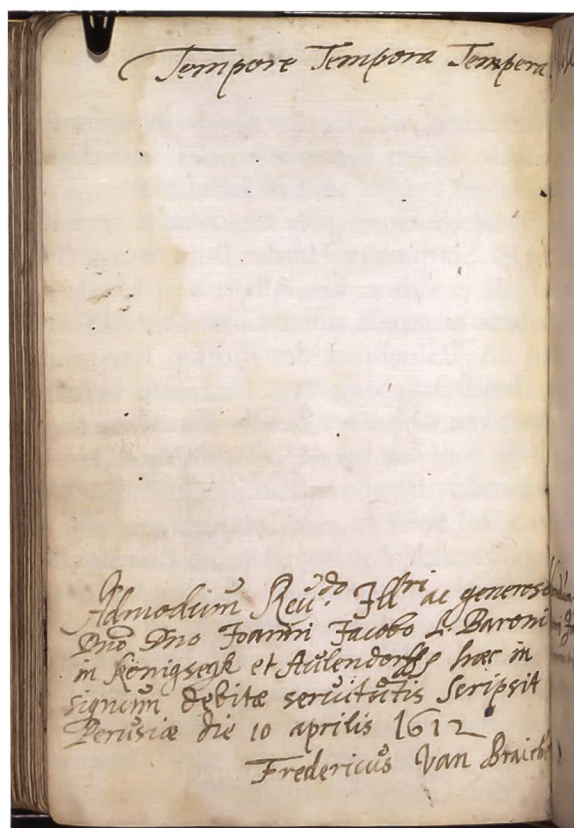 Tempore Tempora Tempera
Admodum Reu.do Illtri ac generoso
Dno Dno Joanni Jacobo L. Baroni
in Königsegk et Aulendorff hæc in
signum debitæ seruitutis scripsit
Perusiæ die 10 aprilis 1612
Fredericus Van